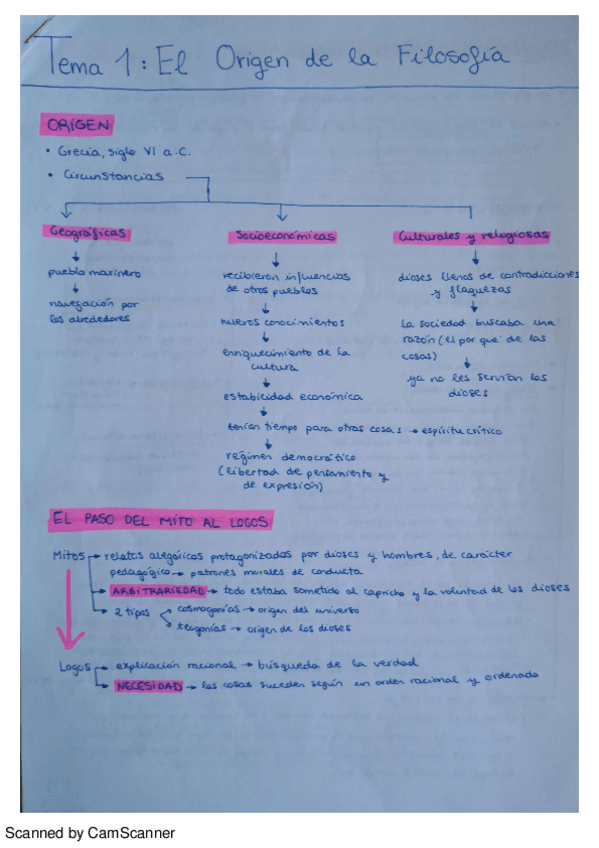 Tema 1: El Origen de la Filosofía
ORIGEN
• Grecia, siglo VI a.C.
• Circunstancias
Geográficas
↓
pueblo marinero
↓
navegación por
los alrededores
Socioeconómicas
↓
recibieron influencias
de otros pueblos
↓
nuevos conocimientos
↓
enriquecimiento de la
cultura
↓
estabilidad económica
↓
tenían tiempo para otras cosas → espíritu crítico
↓
régimen democrático
(libertad de pensamiento y
de expresión)
Culturales y religiosas
↓
dioses llenos de contradicciones
y flaquezas
↓
la sociedad buscaba una
razón (el por qué de las
cosas)
↓
ya no les servían los
dioses
EL PASO DEL MITO AL LOGOS
Mitos → relatos alegóricos protagonizados por dioses y hombres, de carácter
pedagógico → patrones morales de conducta
→ ARBITRARIEDAD → todo estaba sometido al capricho y la voluntad de los dioses
→ 2 tipos → cosmogonías → origen del universo
→ teogonías → origen de los dioses
Logos → explicación racional → búsqueda de la verdad
→ NECESIDAD → las cosas suceden según un orden racional y ordenado
Scanned by CamScanner